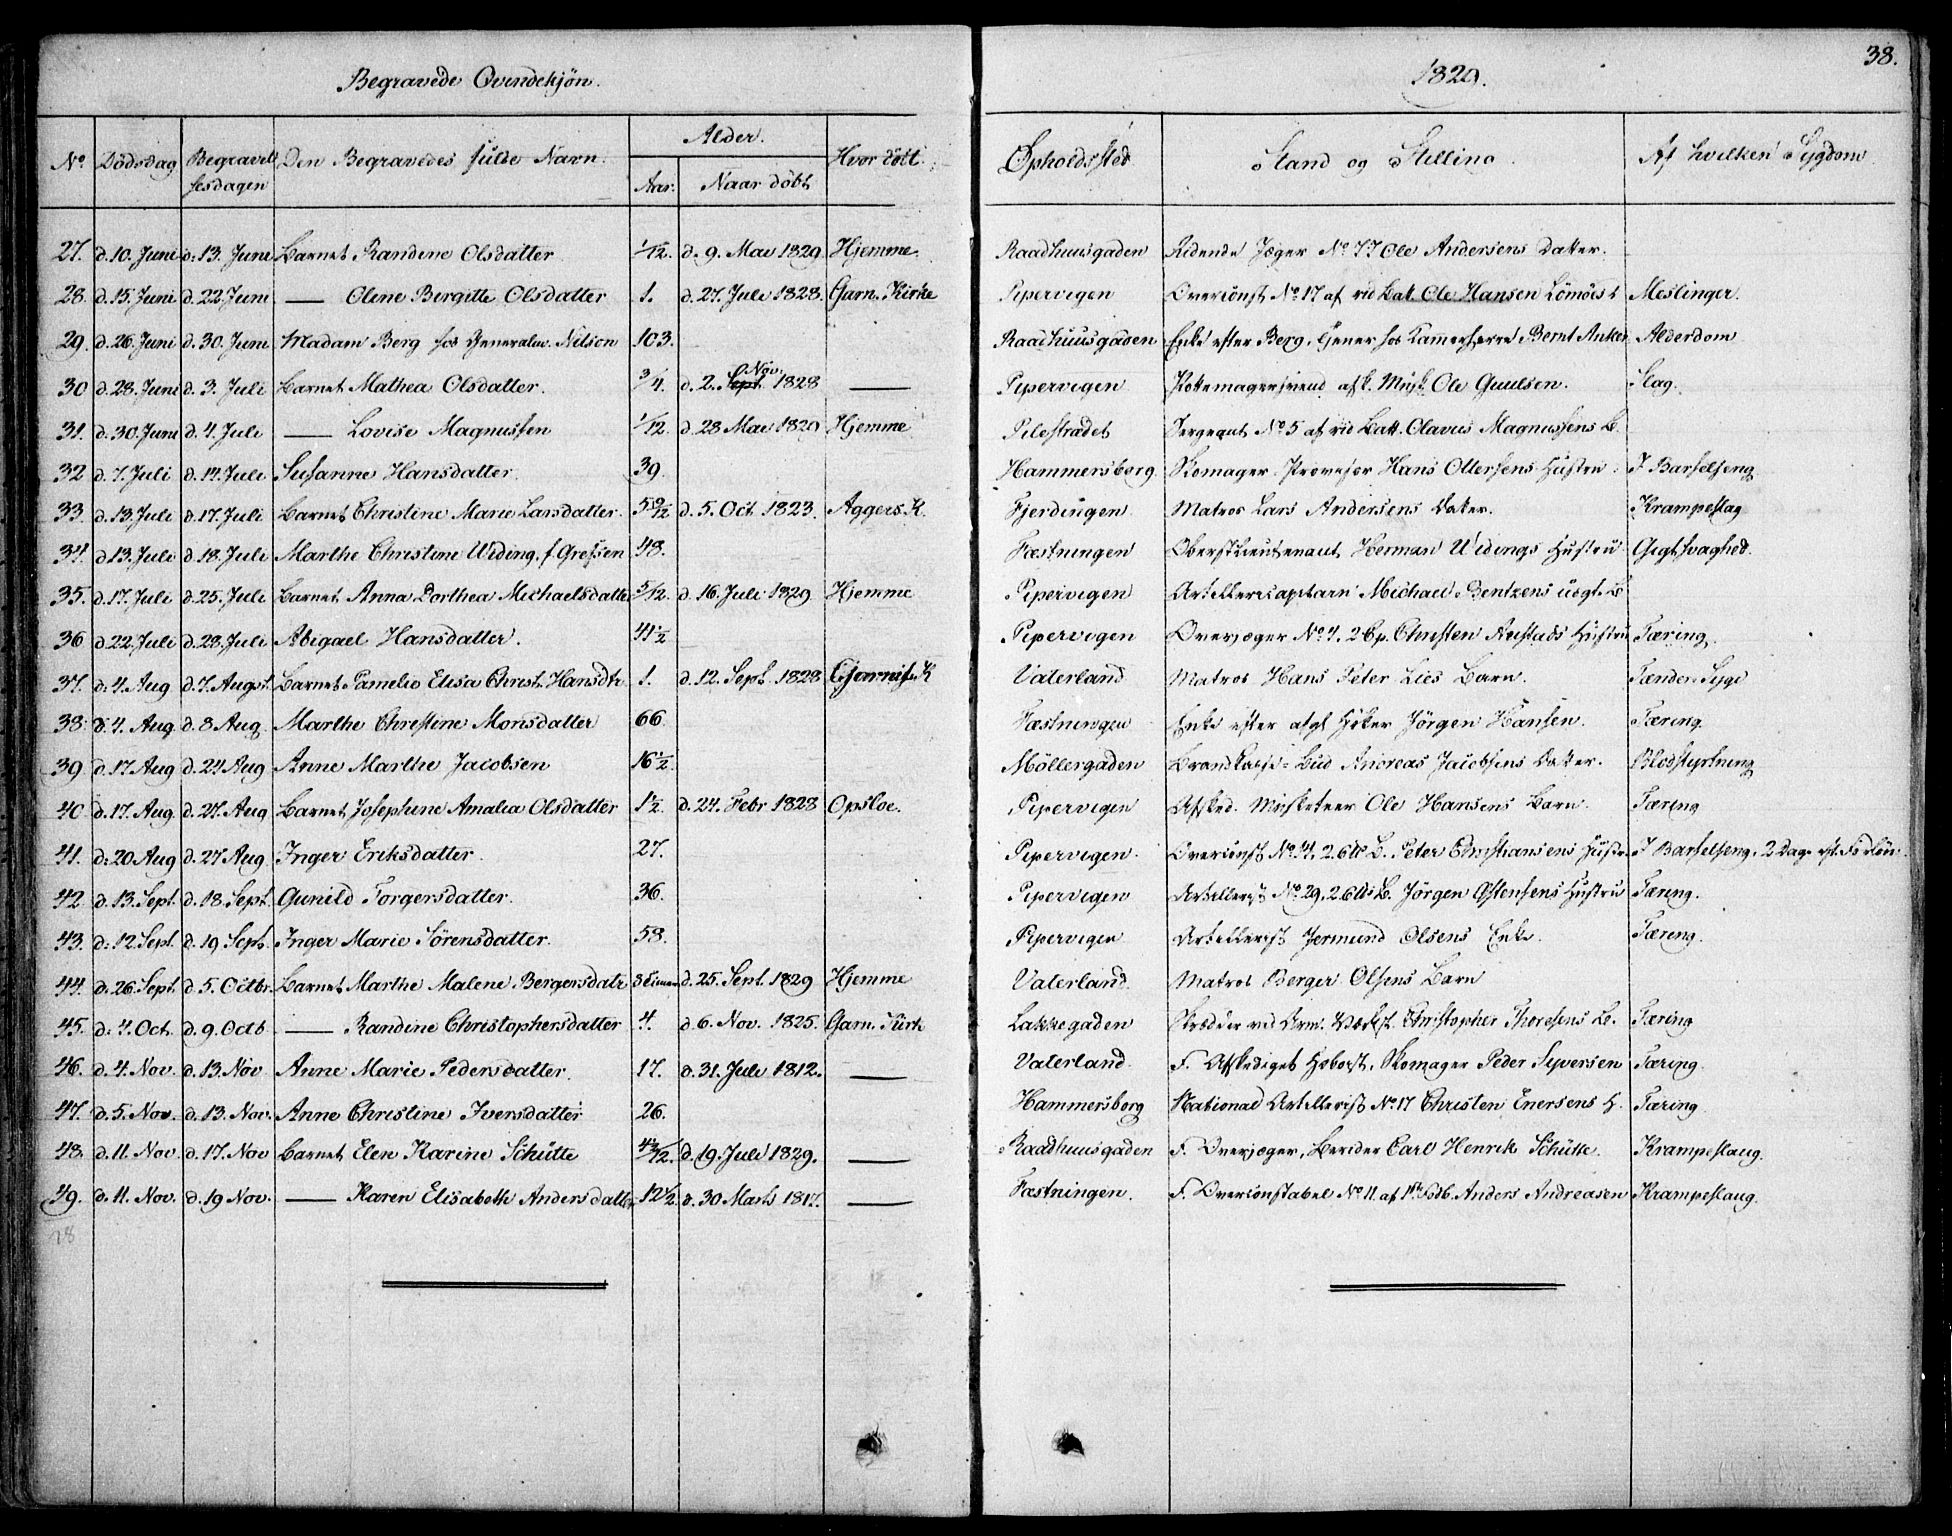 Begravede Qvindekjön.
1829.
38.
No Dödsdag Begravel Den Begravedes fulde Navn. Alder. Hvor döbt Opholdssted Stand og Stilling. Af hvilken Sygdom
sesdagen Aar. Naar döbt
27. d. 10. Juni d. 13. Juni Barnet Randine Olsdatter 1/12. d. 9. Mai 1829 Hjemme. Raadhuusgaden Ridende Jæger No 77 Ole Andersens Datter.
28. d. 15. Juni d. 22 Juni — Olene Bergitte Olsdatter 1. d. 27. Juli 1828. Garn. Kirke Pipervigen Overconst No 17 af rid Bat. Ole Hansen Meslinger.
29. d. 26. Juni d. 30. Juni Madam Berg hos Generalm. Nilson 103. Raadhuusgaden Enke efter Berg, Tjener hos Kammerherre Bernt Anker Alderdom
30 d. 28. Juni d. 3. Juli Barnet Mathea Olsdatter. 3/4. d. 2. Sept. Nov. 1828 — Pipervigen afsk. Musk. Ole Guulsen. Slag.
31. d. 30. Juni d. 4. Juli — Lovise Magnussen 1/12. d. 28 Mai 1829 Hjemme Pilestrædet Sergeant No 5 af rid Batt. Olavus Magnussens B.
32 d. 7. Juli d. 14. Juli Susanne Hansdatter. 39. Hammersborg. Skomager Hans Ottersens Hustru. I Barselseng
33. d. 13. Juli d. 17. Juli Barnet Christine Marie Larsdatter. 5 9/12 d. 5. Oct 1823. Aggers. K. Fjerdingen Matros Lars Andersens Datter. Krampeslag
34. d. 13. Juli d. 18. Juli Marthe Christine Widing, f. Grefsen 48. Fæstningen Oberstlieutenant Herman Widings Hustru Gigtsvaghed.
35. d. 17. Juli d. 25. Juli Barnet Anna Dorthea Michaelsdatter 5/12. d. 16. Juli 1829 Hjemme Pipervigen Artillericaptain Michael Bentzens uægt. B
36 d. 22. Juli d. 28. Juli Abigael Hansdatter. 41 1/2 Pipervigen Overjæger No 4. 2 Cp. Christen Hustru Tæring.
37. d. 4. Aug d. 7. Augst. Barnet Pamelia Elisa Christ. Hansdtr 1. d. 12. Sept. 1828 Gjarnis. K Vaterland Matros Hans Peter Lies Barn. Tænder Syge
38. d. 4. Aug. d. 8. Aug. Marthe Christine Monsdatter 66. Fæstningen Enke efter afgl. Høker Jörgen Hansen. Tæring.
39. d. 17. Aug d. 24. Aug Anne Marthe Jacobsen 16 1/2. Möllergaden Brandkasse-Bud Andreas Jacobsens Datter. Blodstyrtning
40 d. 17. Aug. d. 27. Aug Barnet Josephine Amalia Olsdatter 1 1/2. d. 24. Febr 1828 Opsloe. Pipervigen Afsked. Musketeer Ole Hansens Barn. Tæring
41. d. 20 Aug d. 27 Aug. Inger Eriksdatter. 27. Pipervigen. Overconst No 14. 2. B. Peter Christiansens Hustr. I Barselseng. 2 Dage eft. Forløsn.
42 d. 13. Sept. d. 18. Sept. Gunild Torgersdatter. 36. Pipervigen Artillerist No 29. 2 B. Jörgen Ostensens Hustru Tæring.
43. d. 12. Sept. d. 19. Sept. Inger Marie Sörensdatter. 58. Pipervigen Artillerist Jermund Olsens Enke. Tæring.
44. d. 26. Sept. d. 5. Octbr. Barnet Marthe Malene Bergersdatr 3 Timer d. 25. Sept. 1829 Hjemme Vaterland. Matros Berger Olsens Barn
45. d. 4. Oct. d. 9. Octb — Randine Christophersdatter 4. d. 6. Nov. 1825. Garn. Kirk Lakkegaden Skrædder ved Arm. Værkst. Christopher Thoresens B. Tæring
46. d. 4. Nov. d. 13. Nov Anne Marie Pedersdatter. 17. d. 31. Juli 1812. — Vaterland. F. Afskediget Hoboist, Skomager Peder Syversen Tæring.
47. d. 5. Nov. d. 13. Nov. Anne Christine Iversdatter 26. Hammersborg National Artillerist No 17 Christen Enersens H. Tæring
48. d. 11. Nov. d. 17. Nov Barnet Elen Karine Schütte 4 1/2/12. d. 19. Juli 1829. — Raadhuusgaden F. Overjæger, Berider Carl Henrik Schütte. Krampeslaug.
49. d. 11. Nov. d. 19 Nov. — Karen Elisabeth Andersdatter 12 1/2. d. 30 Marts 1817. — Fæstningen. F. Overconstabel No 11. af 1ste Anders Andreasen Krampeslaug.